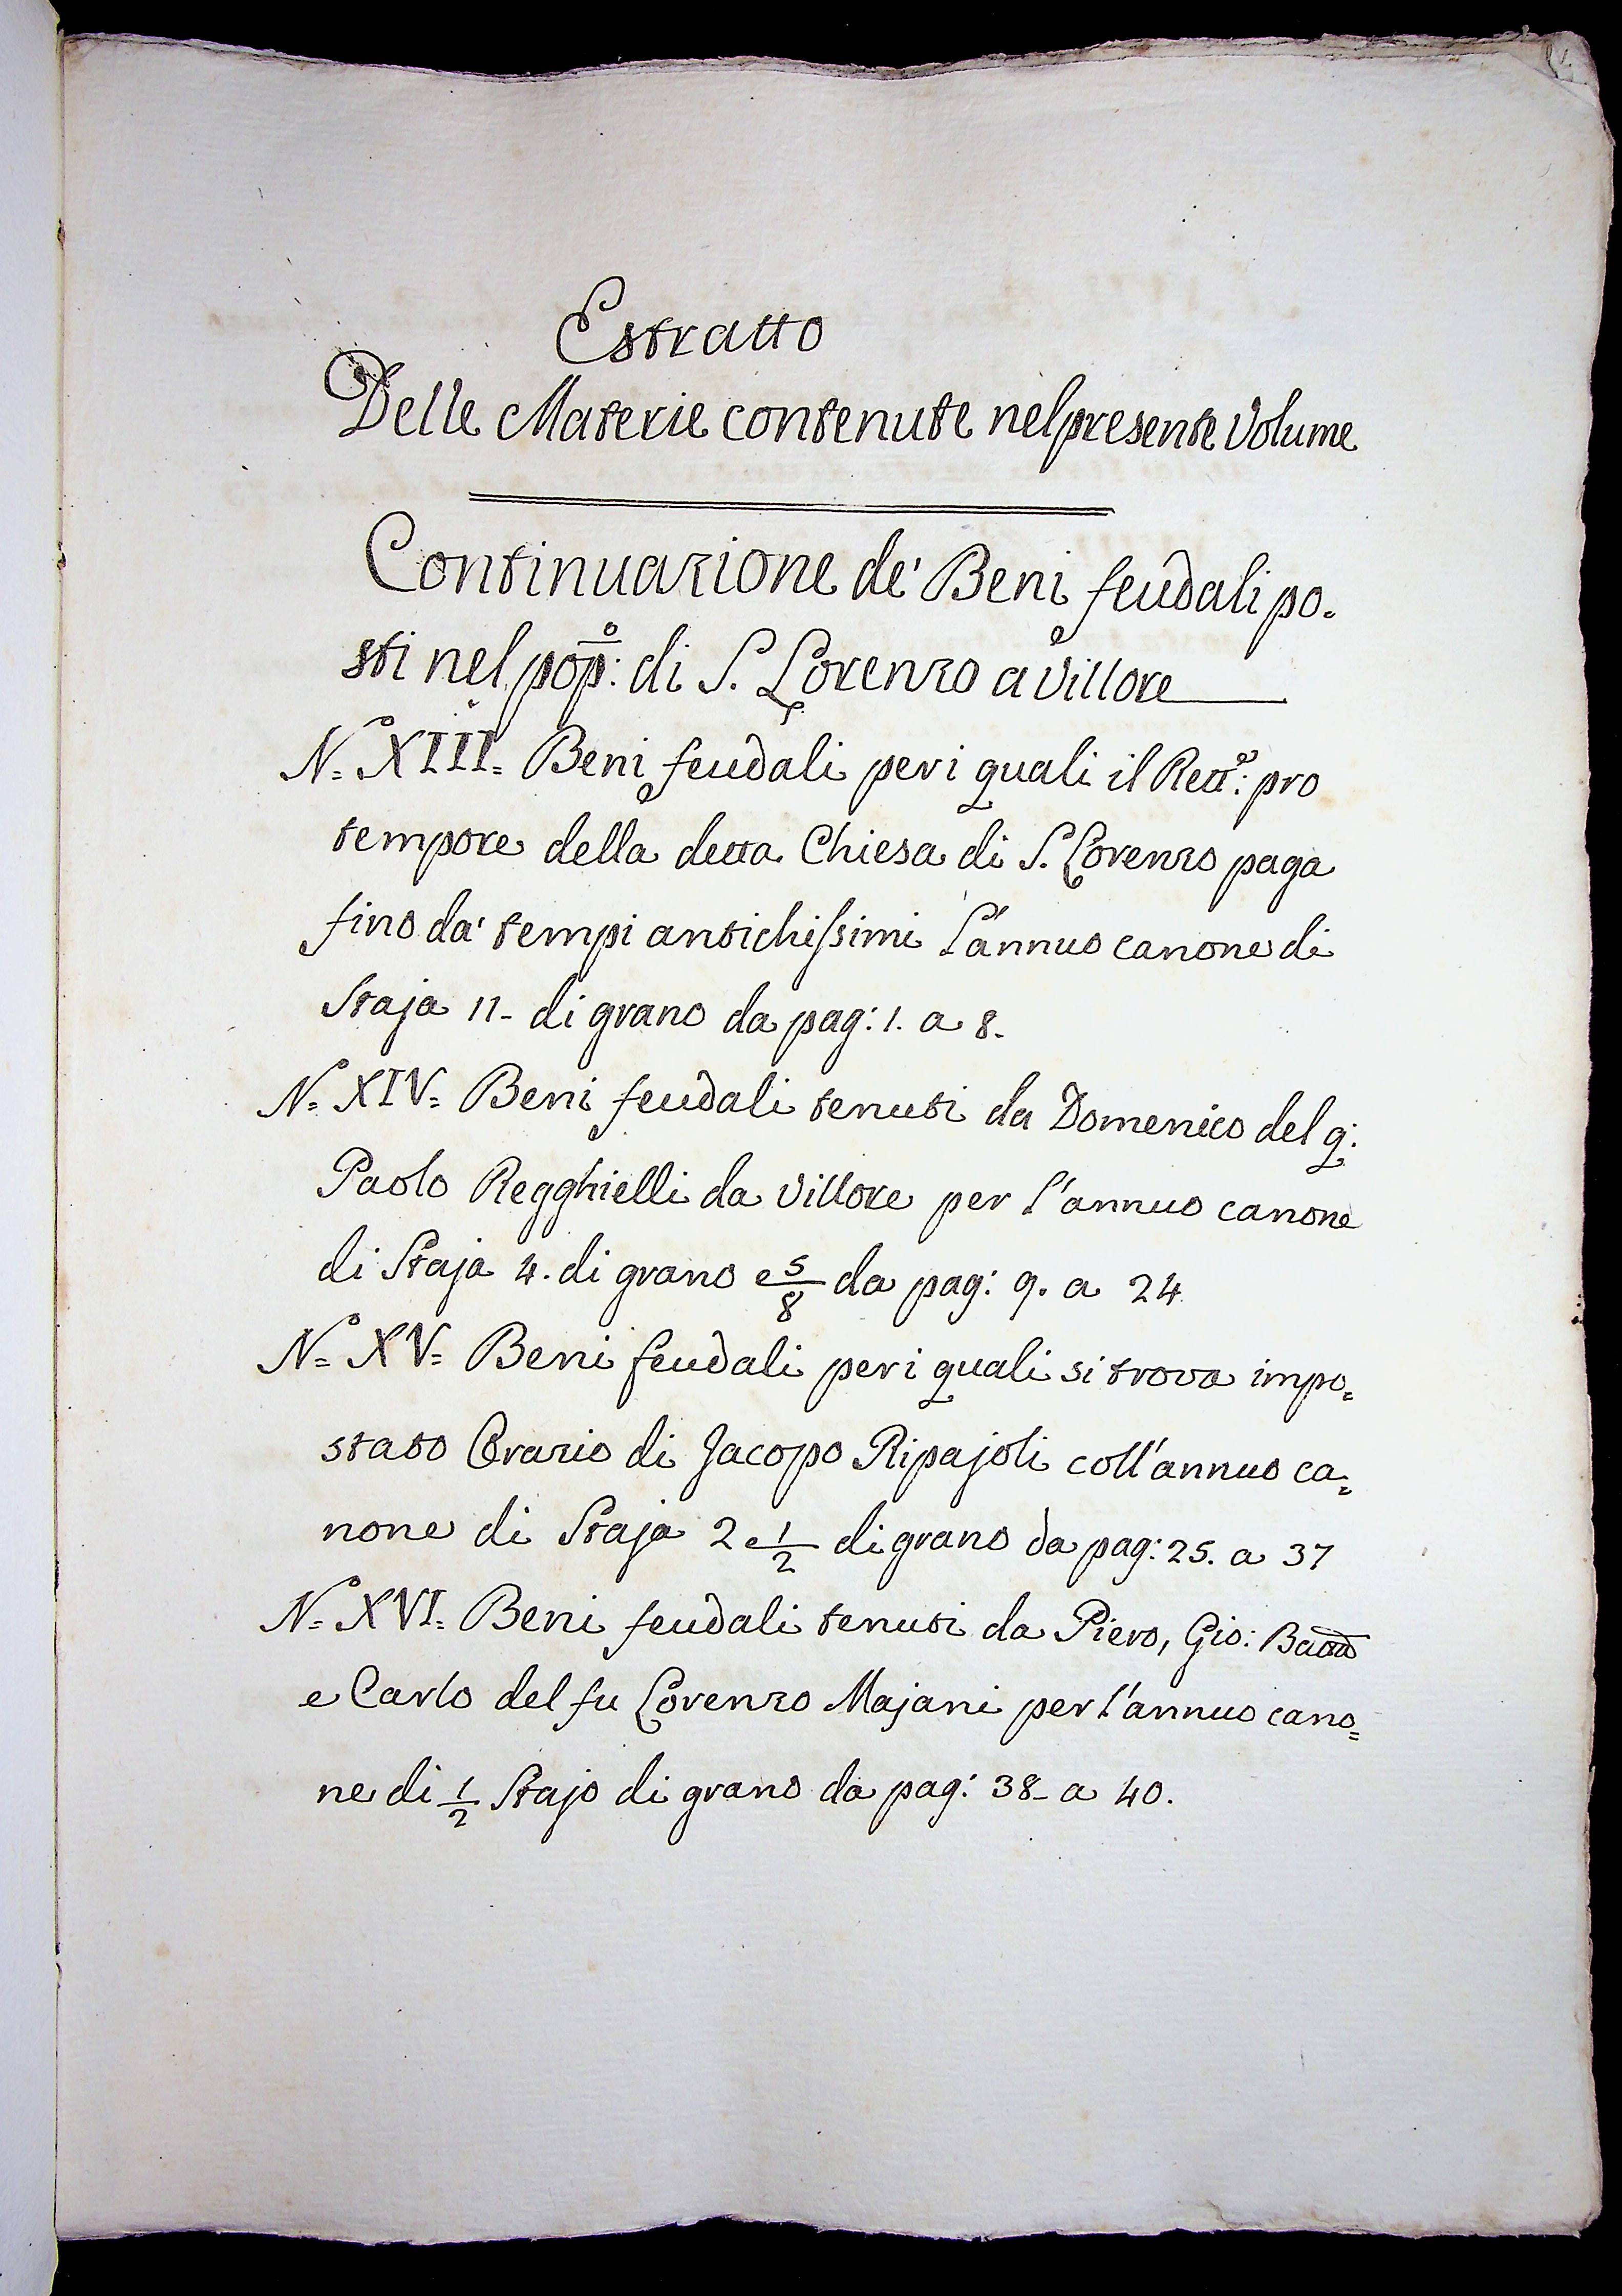 Estratto
Delle Materie contenute nel presente Volume
Continuazione de' Beni feudali po=
sti nel pop:º di S. Lorenzo a Villore
Nº= XIII= Beni feudali per i quali il Rett:e pro
tempore della detta Chiesa di S. Lorenzo paga
fino da' tempi antichissimi l'annuo canone di
Staja 11- di grano da pag: 1. a 8-
Nº= XIV= Beni feudali tenuti da Domenico del q:
Paolo Regghielli da Villore per l'annuo canone
di Staja 4. di grano e 5/8 da pag: 9. a 24
Nº= XV= Beni feudali per i quali si trova impo=
stato Orazio di Jacopo Ripajoli coll'annuo ca=
none di Staja 2 e 1/2 di grano da pag: 25. a 37
Nº= XVI= Beni feudali tenuti da Piero, Gio: Batta
e Carlo del fu Lorenzo Majani per l'annuo cano=
ne di 1/2 Stajo di grano da pag: 38- a 40.